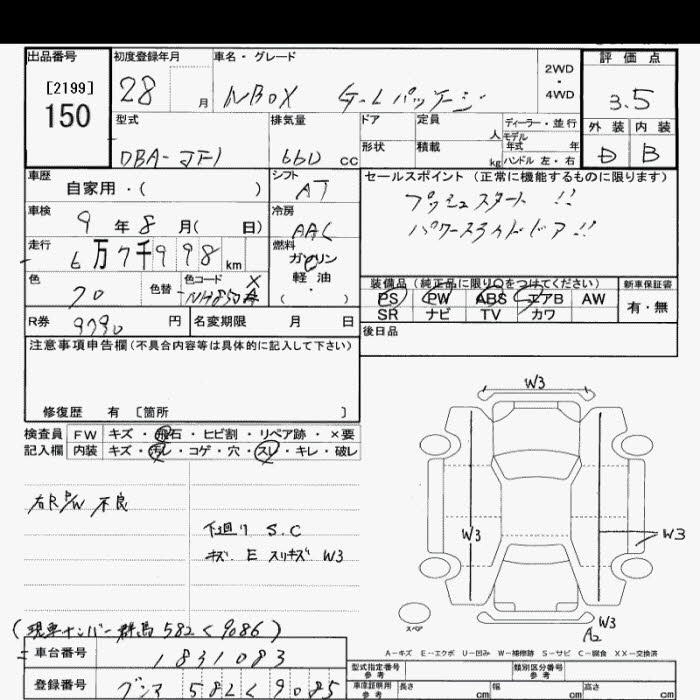 出品番号 初度登録年月 車名・グレード 2WD・4WD 評価点
[2199]
150 28 月 NBOX G-Lパッケージ 3.5
型式 排気量 ドア 定員 人 ディーラー・並行 外装 内装
DBA-JF1 660 cc 形状 積載 kg モデル年式 年 ハンドル 左・右 D B
車歴 シフト セールスポイント(正常に機能するものに限ります)
自家用・( ) AT プッシュスタート !!
車検 9年8月( 日) 冷房 AAC パワースライドドア !!
走行 6万7千998 km 燃料 ガソリン
軽油
・( )
色 色替 色コード 装備品(純正品に限り○をつけてください) 新車保証書
NH850 PS PW ABS エアB AW 有・無
SR ナビ TV カワ
R券 9790 円 名変期限 月 日 後日品
注意事項申告欄(不具合内容等は具体的に記入して下さい)
修復歴 有 [箇所 ]
検査員 FW キズ・飛石・ヒビ割・リペア跡・×要
記入欄 内装 キズ・汚レ・コゲ・穴・スレ・キレ・破レ
右R P/W 不良
下廻り S.C
キズ E スリキズ W3
W3
W3
W3
W3
A2
スペア
(現車ナンバー 群馬 582 く 9086)
A-キズ E-エクボ U-凹み W-補修跡 S-サビ C-腐食 XX-交換済
車台番号 1831083 型式指定番号 参考 類別区分番号 参考
登録番号 グンマ 582 く 9085 車庫証明用 参考 長さ cm 幅 cm 高さ cm